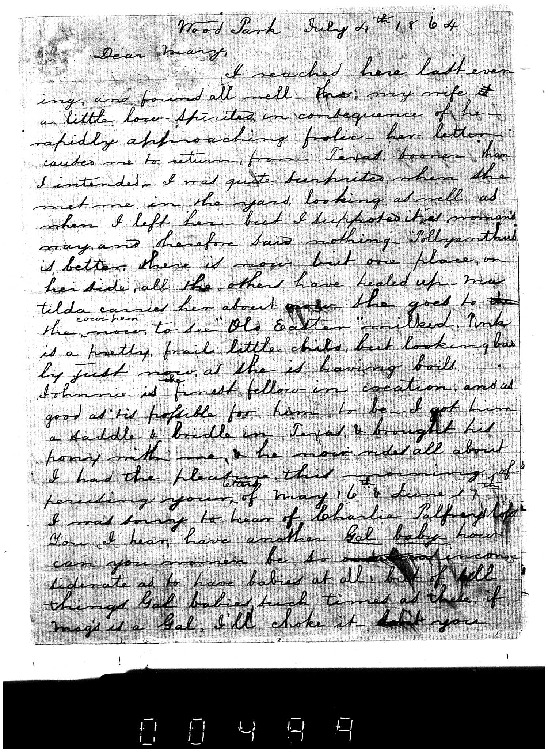 Wood Park July 4th 1864
Dear Mary,
I reached here last even
ing, and found all well. my wife
a little low spirited in consequence of he
rapidly approaching frolic - her letters
caused me to return from Texas sooner than
I intended. I was quite surprised when she
met me in the yard looking as well as
when I left her but I supposed it is womans
way and therefore said nothing.
is better, there is now but one place, on
her side, all the others have healed up. Ma
tilda carries her about she goes to
cow pen
the now to see "Old Easter" milked. Pink
is a pretty, frail little child, but looking bad
ly just now, as she is having boils.
Johnnie is the finest fellow in creation and as
good as tis possible for him to be. I got him
a saddle & bridle in Texas & brought his
pony with me, & he now rides all about
I had the pleasure this morning of
perusing yours of May 16th & June 17th
I was sorry to hear of Charlie Palfrey's
You I hear have another Gal baby, how
can you women be so incon
siderate as to have babies at all but of all
things Gal babies such times as these if
Mags is a Gal, I'll choke it you
00499